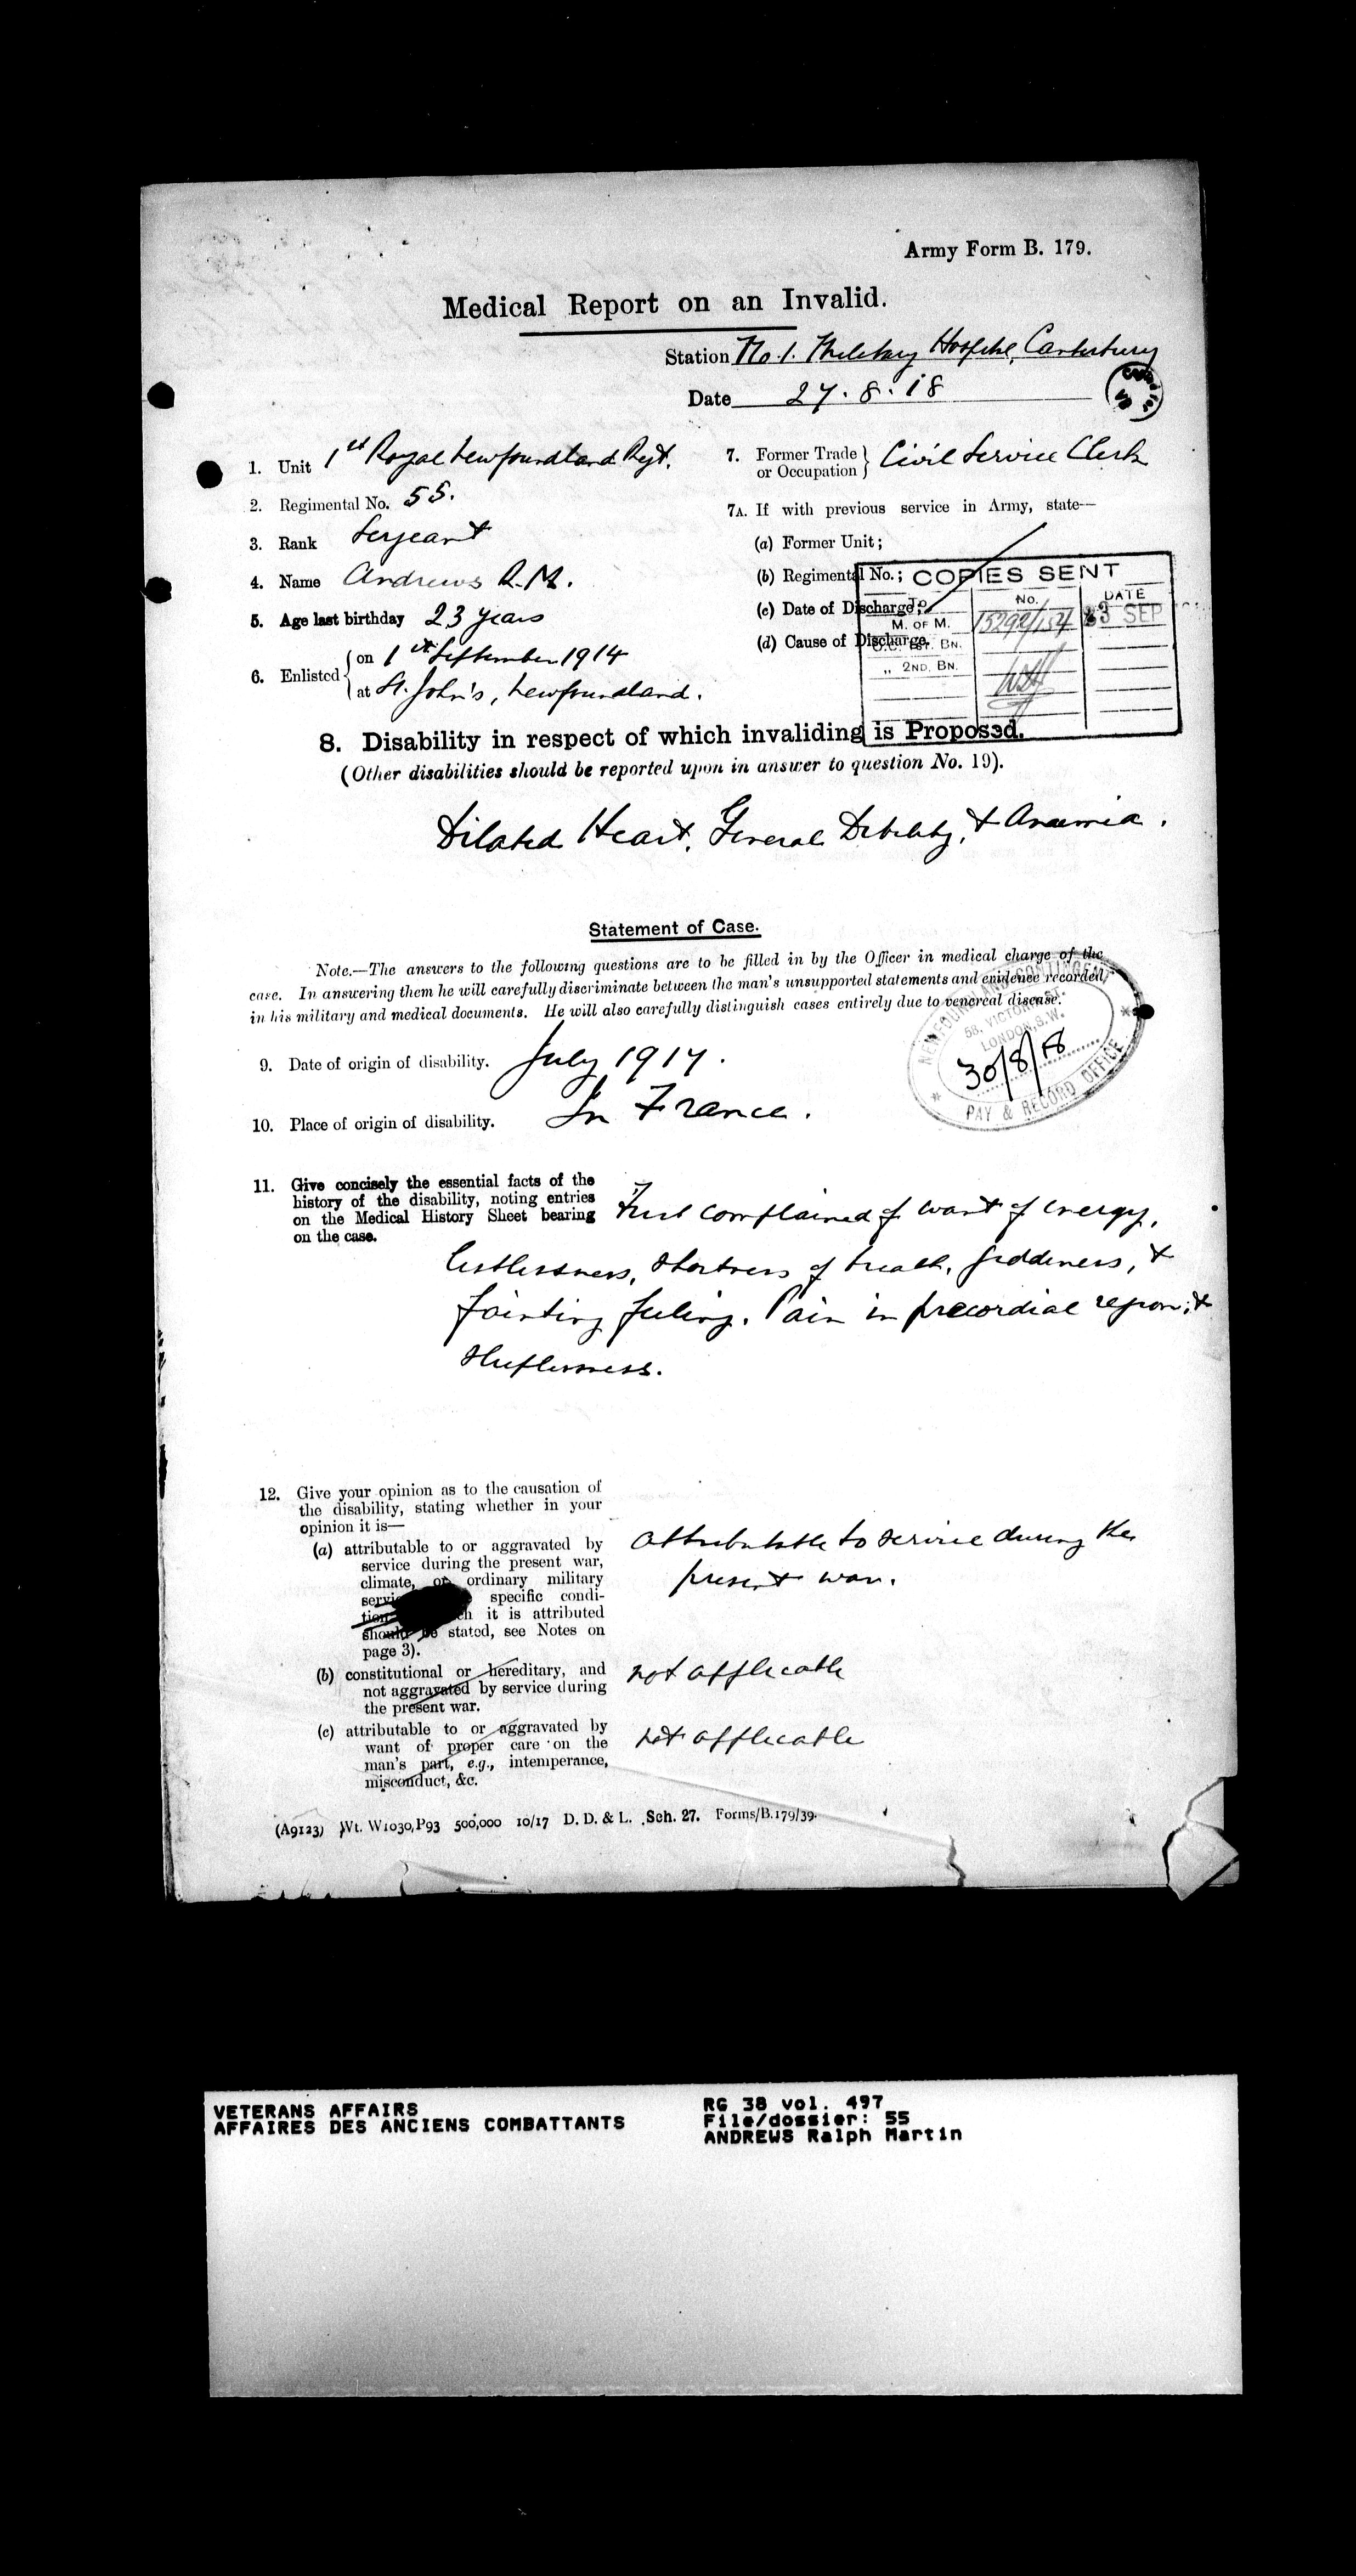 Army Form B. 179.
Medical Report on an Invalid.
Station No. 1. Military Hospital, Canterbury
Date 27.8.18
1. Unit 1st Royal Newfoundland Regt.
2. Regimental No. 55.
3. Rank Serjeant
4. Name Andrews R.M.
5. Age last birthday 23 years
6. Enlisted { on 1st September 1914
at St. John's, Newfoundland.
7. Former Trade or Occupation } Civil Service Clerk
7A. If with previous service in Army, state—
(a) Former Unit;
(b) Regimental No.;
(c) Date of Discharge;
(d) Cause of Discharge.
COPIES SENT
To No. DATE
M. OF M. 15292/154 23 SEP
O.C. 1ST. BN.
„ 2ND. BN.
8. Disability in respect of which invaliding is Proposed.
(Other disabilities should be reported upon in answer to question No. 19).
Dilated Heart, General Debility, & Anaemia.
Statement of Case.
Note.—The answers to the following questions are to be filled in by the Officer in medical charge of the
case. In answering them he will carefully discriminate between the man's unsupported statements and evidence recorded,
in his military and medical documents. He will also carefully distinguish cases entirely due to venereal disease.
NEWFOUNDLAND CONTINGENT
58, VICTORIA ST.
LONDON, S.W.
30/8/18
PAY & RECORD OFFICE
9. Date of origin of disability. July 1917.
10. Place of origin of disability. In France.
11. Give concisely the essential facts of the
history of the disability, noting entries
on the Medical History Sheet bearing
on the case.
First complained of want of energy,
listlessness, shortness of breath, giddiness, &
fainting feeling. Pain in precordial region; &
sleeplessness.
12. Give your opinion as to the causation of
the disability, stating whether in your
opinion it is—
(a) attributable to or aggravated by
service during the present war,
climate, or ordinary military
specific condi-
it is attributed
should be stated, see Notes on
page 3).
attributable to service during the
present war.
(b) constitutional or hereditary, and
not aggravated by service during
the present war.
not applicable
(c) attributable to or aggravated by
want of proper care on the
man's part, e.g., intemperance,
misconduct, &c.
not applicable
(A9123) Wt. W1030,P93 500,000 10/17 D. D. & L. Sch. 27. Forms/B.179/39.
VETERANS AFFAIRS
AFFAIRES DES ANCIENS COMBATTANTS
RG 38 vol. 497
File/dossier: 55
ANDREWS Ralph Martin